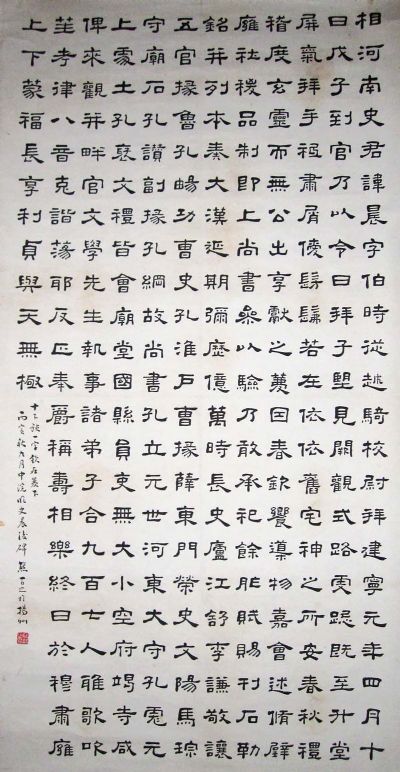 相河南史君諱晨字伯時從越騎校尉拜建寧元年四月十
日戊子到官乃以令日拜子望見闕觀式路虔跽既至升堂
屏氣拜手祗肅屑僾髣髴若在依依舊宅神之所安春秋禮
稽度玄靈而無公出享獻之薦因春欽饗導物嘉會述脩璧
廱社稷品制即上尚書參以驗乃敢承祀餘胙賦賜刊石勒
銘并列本奏大漢延期彌歷億萬時長史廬江舒李謙敬讓
五官掾魯孔暘功曹史孔淮戶曹掾薛東門榮史文陽馬琮
守廟石孔讚副掾孔綱故尚書孔立元世河東大守孔彪元
上處土孔褒文禮皆會廟堂國縣員吏無大小空府竭寺咸
俾來觀并畔官文學先生執事諸弟子合九百七人雅歌吹
笙考律八音克諧蕩邪反正奉爵稱壽相樂終日於穆肅廱
上下蒙福長享利貞與天無極
十下脫一字
丙寅秋九月中浣臨史晨後碑於揚州